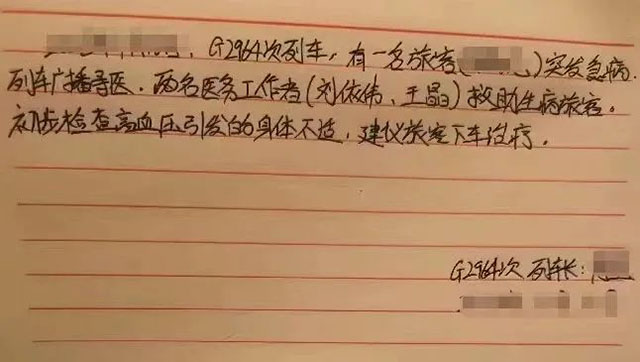 G2964次列车，有一名旅客（ ）突发急病.
列车广播寻医. 两名医务工作者（刘依伟、王晶）救助生病旅客.
初步检查高血压引发的身体不适，建议旅客下车治疗.
G2964次 列车长: